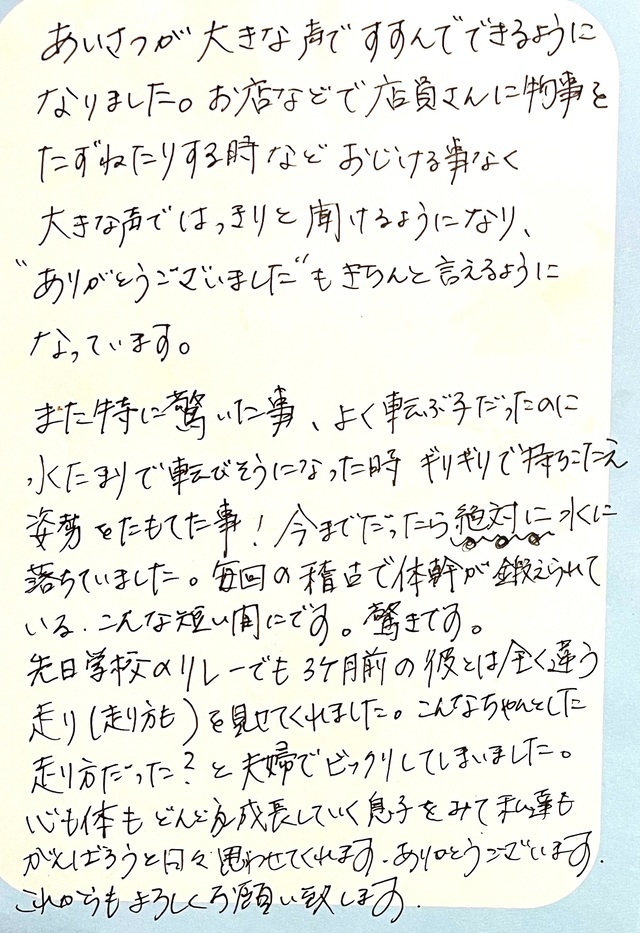 あいさつが大きな声ですすんでできるように
なりました。お店などで店員さんに物事を
たずねたりする時などおじける事なく
大きな声ではっきりと聞けるようになり、
“ありがとうございました”もきちんと言えるように
なっています。
また特に驚いた事、よく転ぶ子だったのに
水たまりで転びそうになった時ギリギリで持ちこたえ
姿勢をたもてた事！今までだったら絶対に水に
落ちていました。毎回の稽古で体幹が鍛えられて
いる.こんな短い間にです。驚きです。
先日学校のリレーでも3ケ月前の彼とは全く違う
走り(走り方も)を見せてくれました。こんなちゃんとした
走り方だった？と夫婦でビックリしてしまいました。
心も体もどんどん成長していく息子をみて私達も
がんばろうと日々思わせてくれます.ありがとうございます.
これからもよろしくお願い致します.